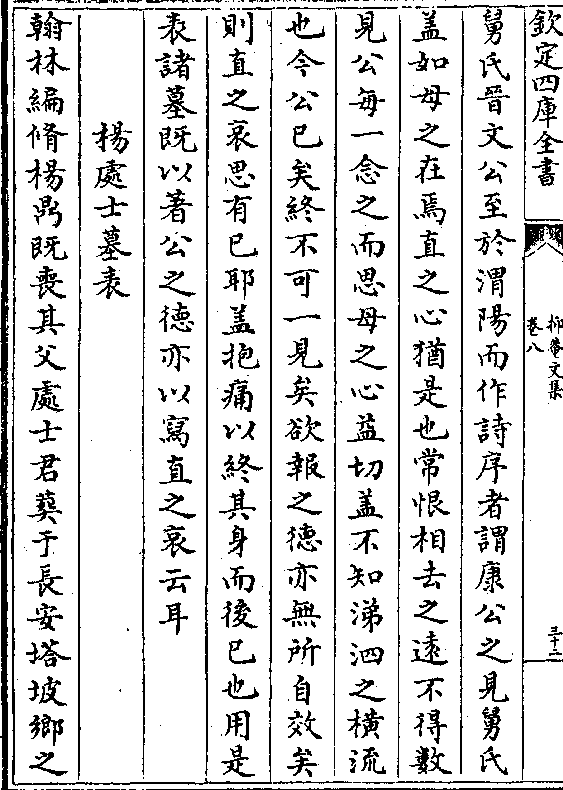 欽定四庫全書
抑菴文集
卷八
三十二
舅氏晉文公至於渭陽而作詩序者謂康公之見舅氏
蓋如母之在焉直之心猶是也常恨相去之遠不得數
見公每一念之而思母之心益切蓋不知涕泗之橫流
也今公已矣終不可一見矣欲報之德亦無所自效矣
則直之哀思有已耶蓋抱痛以終其身而後已也用是
表諸墓既以著公之德亦以寫直之哀云耳
楊處士墓表
翰林編脩楊鼎既喪其父處士君葬于長安塔坡鄉之